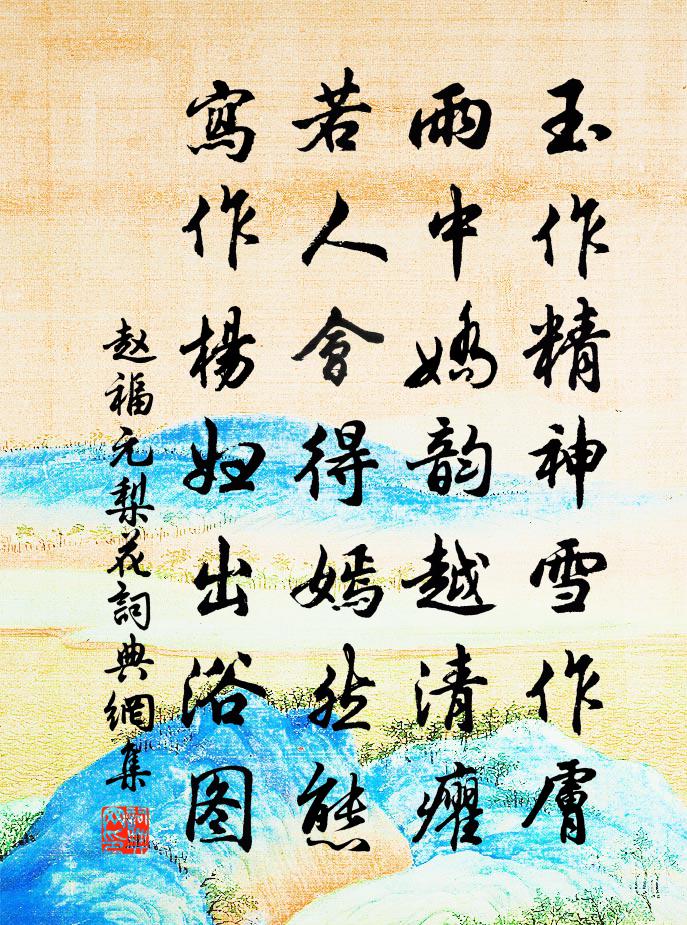 玉作精神雪作膚
雨中嬌韵越清癯
若人會得嫣然態
寫作楊妃出浴图
赵福元梨花詞典網集